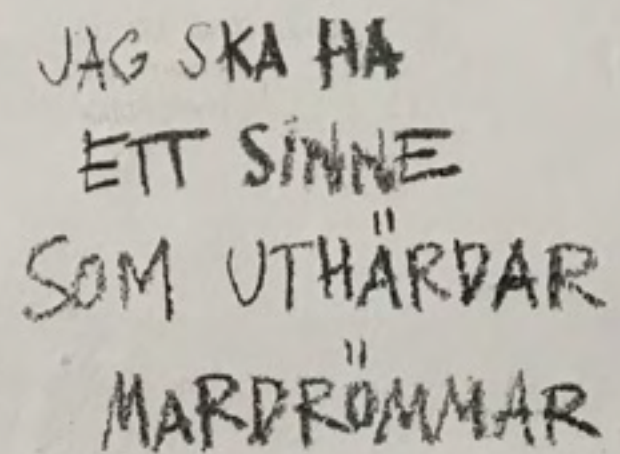 JAG SKA HA
ETT SINNE
SOM UTHÄRDAR
MARDRÖMMAR